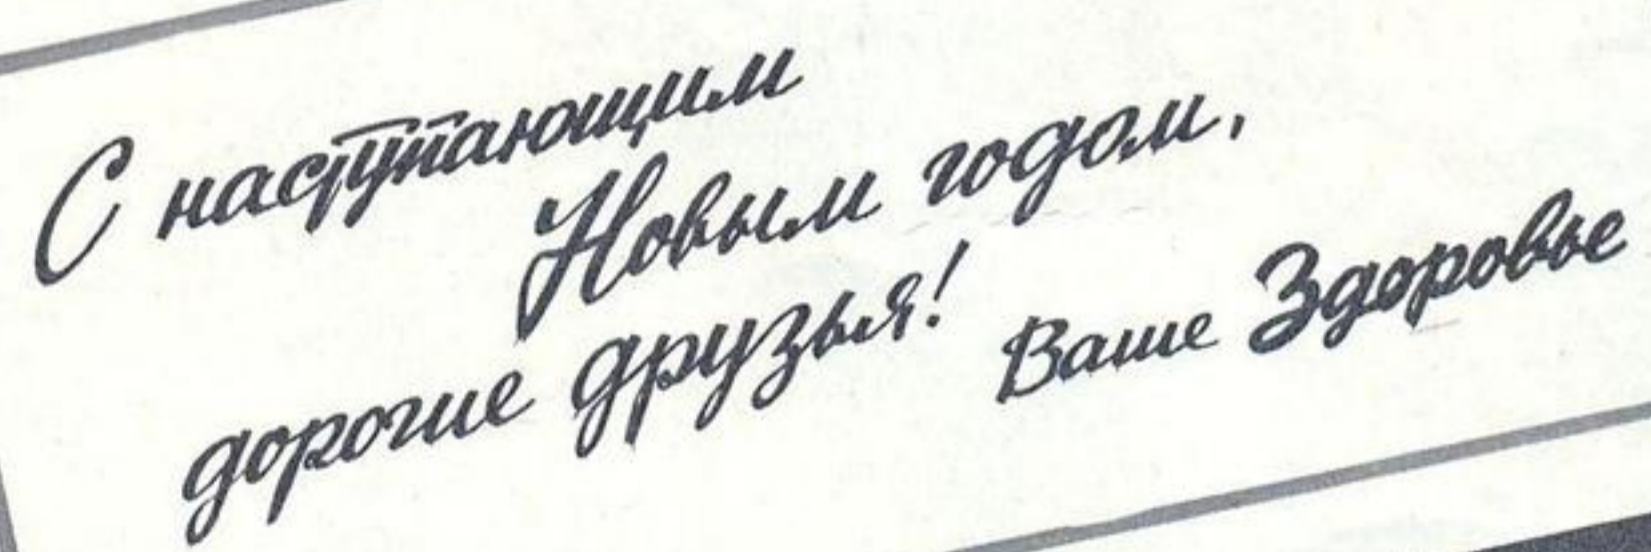 С наступающим
Новым годом,
дорогие друзья!
Ваше Здоровье